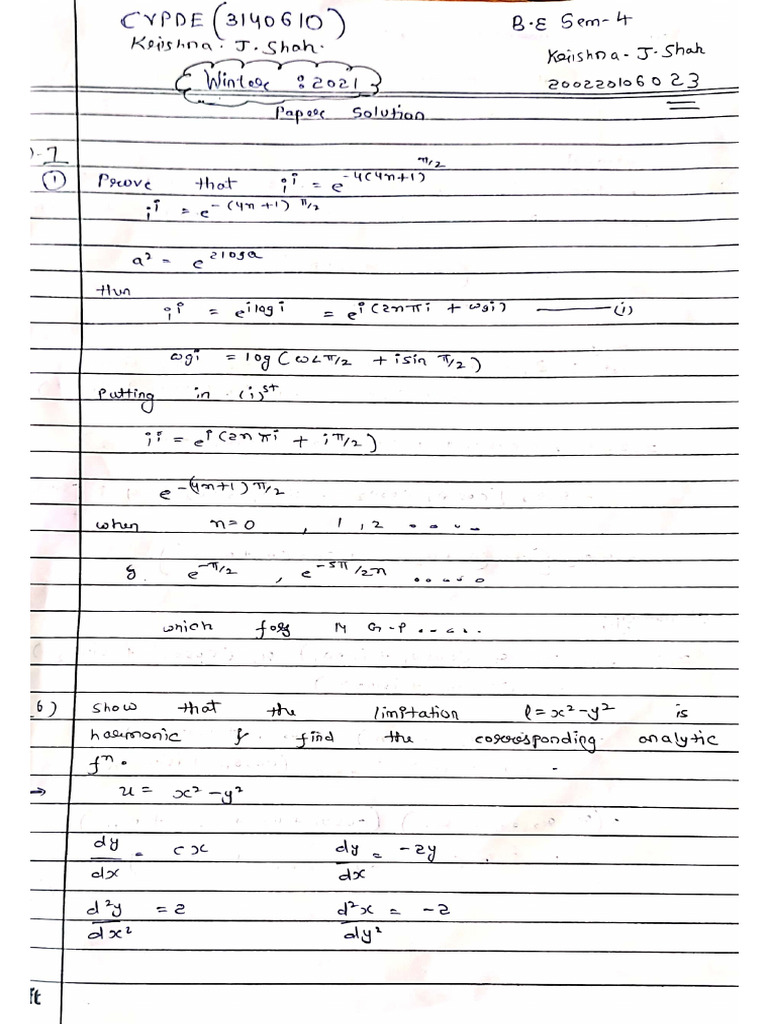 CVPDE (3140610)
B.E Sem-4
Krishna. J. Shah.
Krishna. J. Shah
Winter : 2021
200220106023
Paper Solution
1
① Prove that i^i = e^-4(4n+1)^π/2
i^i = e^-(4n+1) π/2
a² = e^2loga
then
i^i = e^ilogi = e^i(2nπi + logi) ——— (i)
logi = log(cos π/2 + isin π/2)
putting in (i)st
i^i = e^i(2nπi + iπ/2)
e^-(4n+1)π/2
when n=0 , 1 , 2 .....
& e^-π/2 , e^-5π/2n .....
which G-P.....
6) show that the limitation l=x²-y² is
harmonic & find the corresponding analytic
fn.
→ u = x²-y²
dy/dx = cx dy/dx = -2y
d²y/dx² = 2 d²x/dy² = -2
ft